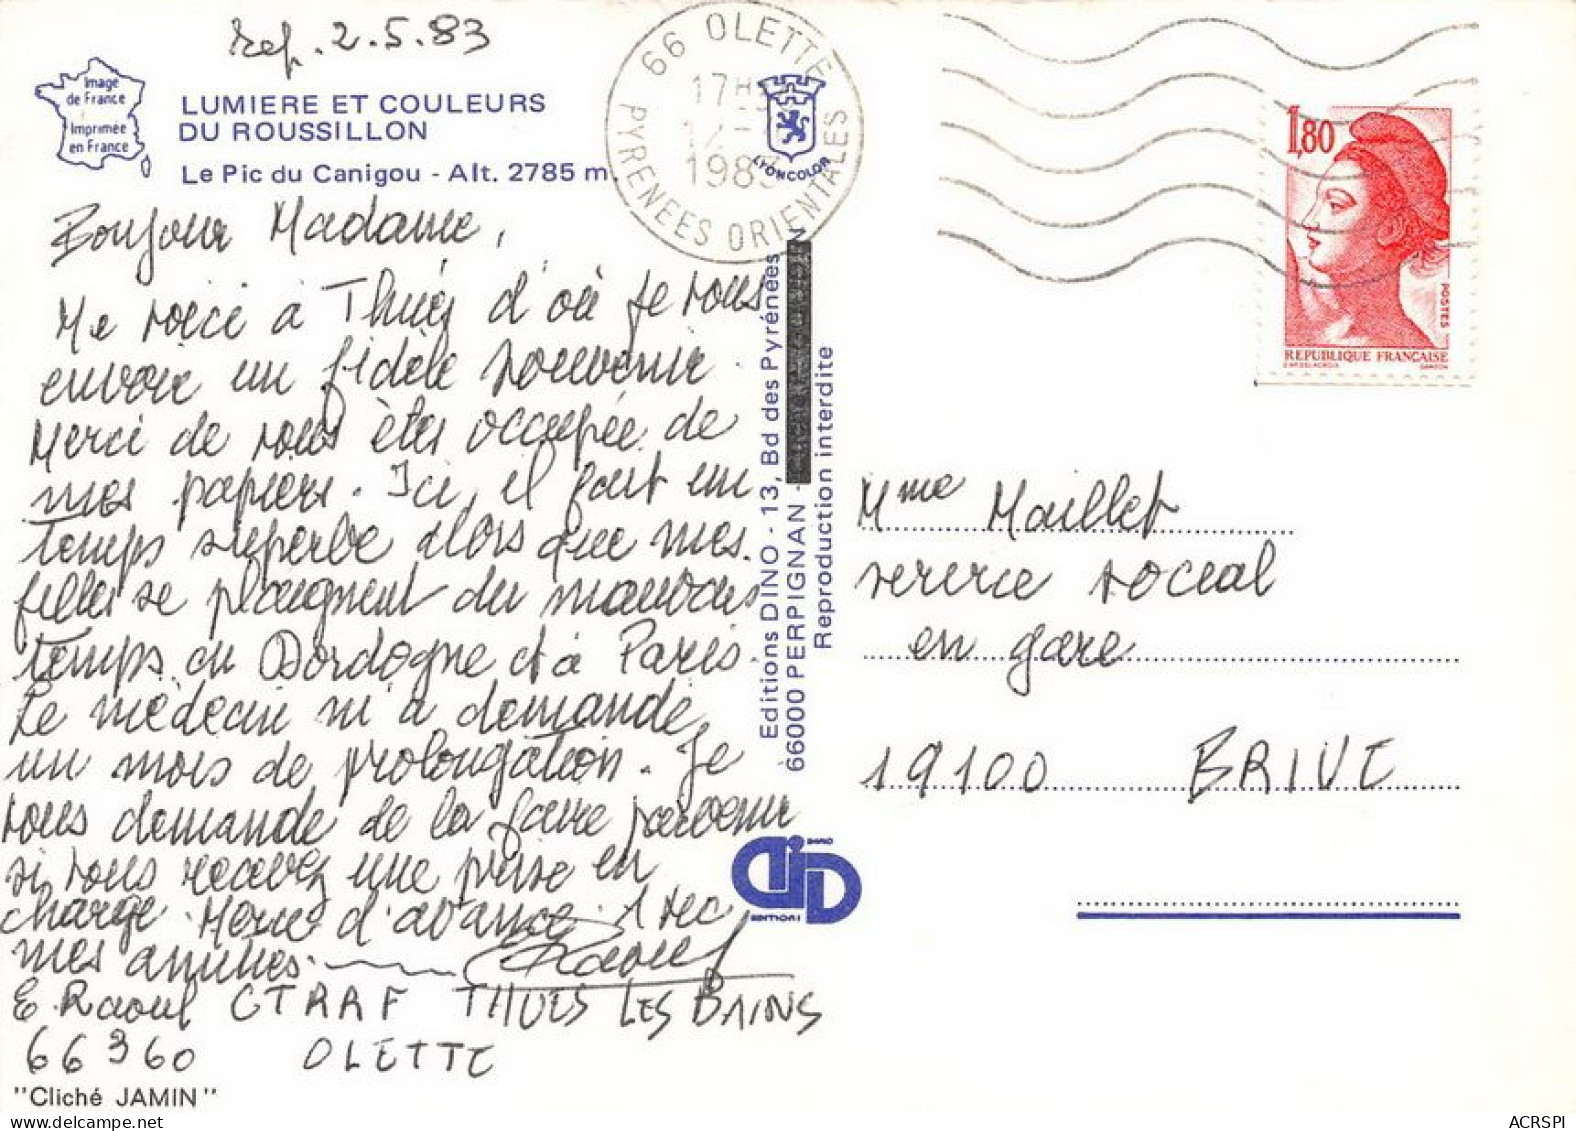 rep. 2.5.83
Image
de France
Imprimée
en France
LUMIERE ET COULEURS
DU ROUSSILLON
Le Pic du Canigou - Alt. 2785 m.
66 OLETTE
17H
12-
1983
PYRENEES ORIENTALES
LYONCOLOR
1,80
POSTES
REPUBLIQUE FRANÇAISE
D'AP. DELACROIX GANDON
Bonjour Madame,
Me voici à Thuès d'où je vous
envoie un fidèle souvenir.
Merci de vous êtes occupée de
mes papiers. Ici, il fait un
temps superbe alors que mes
filles se plaignent du mauvais
temps en Dordogne et à Paris.
Le médecin m'a demandé
un mois de prolongation. Je
vous demande de la faire parvenir
si vous recevez une prise en
charge. Merci d'avance. Avec
mes amitiés.
Raoul
E. Raoul CTRRF THUES LES BAINS
66360 OLETTE
"Cliché JAMIN"
Editions DINO - 13, Bd des Pyrénées
66000 PERPIGNAN -
Reproduction interdite
DINO
EDITIONS
Mme Maillet
service social
en gare
19100 BRIVE
ACRSPI